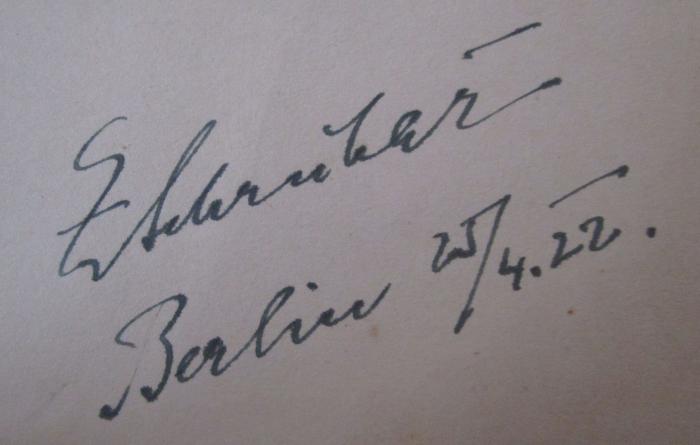 E Schrubar
Berlin 25/4.22.